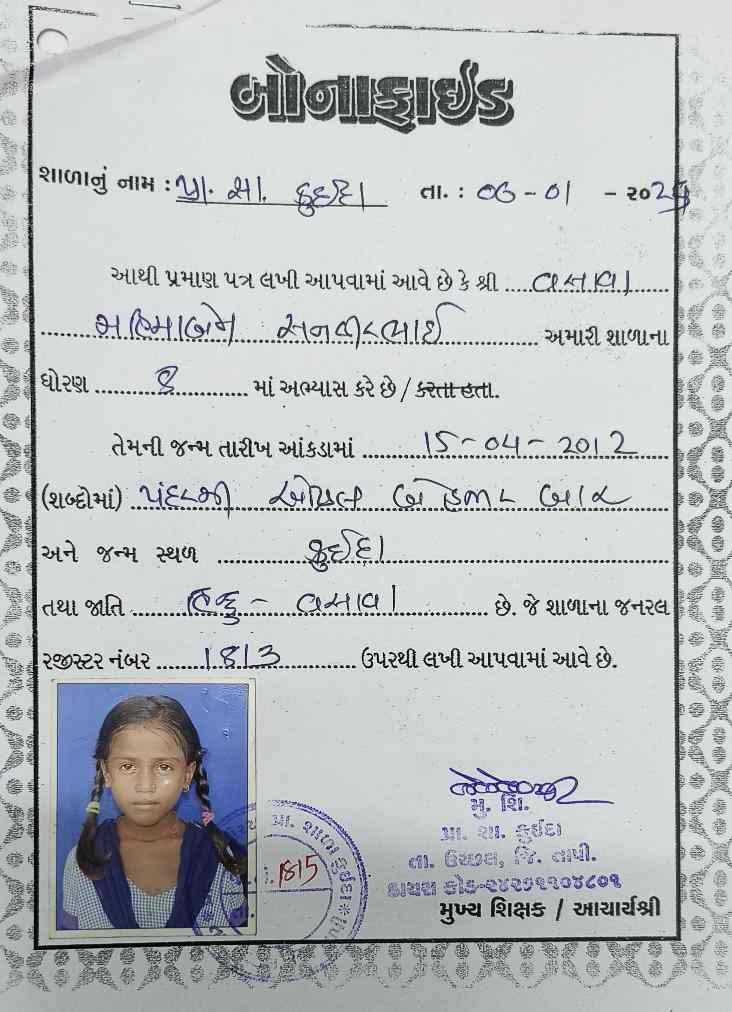 બોનાફાઇડ
શાળાનું નામ : પ્રા. શા. કુઇદા તા. : ૦6 - ૦1 - ૨૦2
આથી પ્રમાણ પત્ર લખી આપવામાં આવે છે કે શ્રી વસાવા
મહિમાબેન અમારી શાળાના
ધોરણ 8 માં અભ્યાસ કરે છે / કરતા હતા.
તેમની જન્મ તારીખ આંકડામાં 15-04-2012
(શબ્દોમાં) પંદરમી એપ્રિલ બે હજાર બાર
અને જન્મ સ્થળ કુઇદા
તથા જાતિ હિન્દુ - વસાવા છે. જે શાળાના જનરલ
રજીસ્ટર નંબર 1813 ઉપરથી લખી આપવામાં આવે છે.
મુ. શિ.
પ્રા. શા. કુઇદા
તા. ઉચ્છલ, જિ. તાપી.
ડાયસ કોડ-૨૪૨૬૧૧૦૪૮૦૧
મુખ્ય શિક્ષક / આચાર્યશ્રી
પ્રા. શાળા કુઇદા
1815